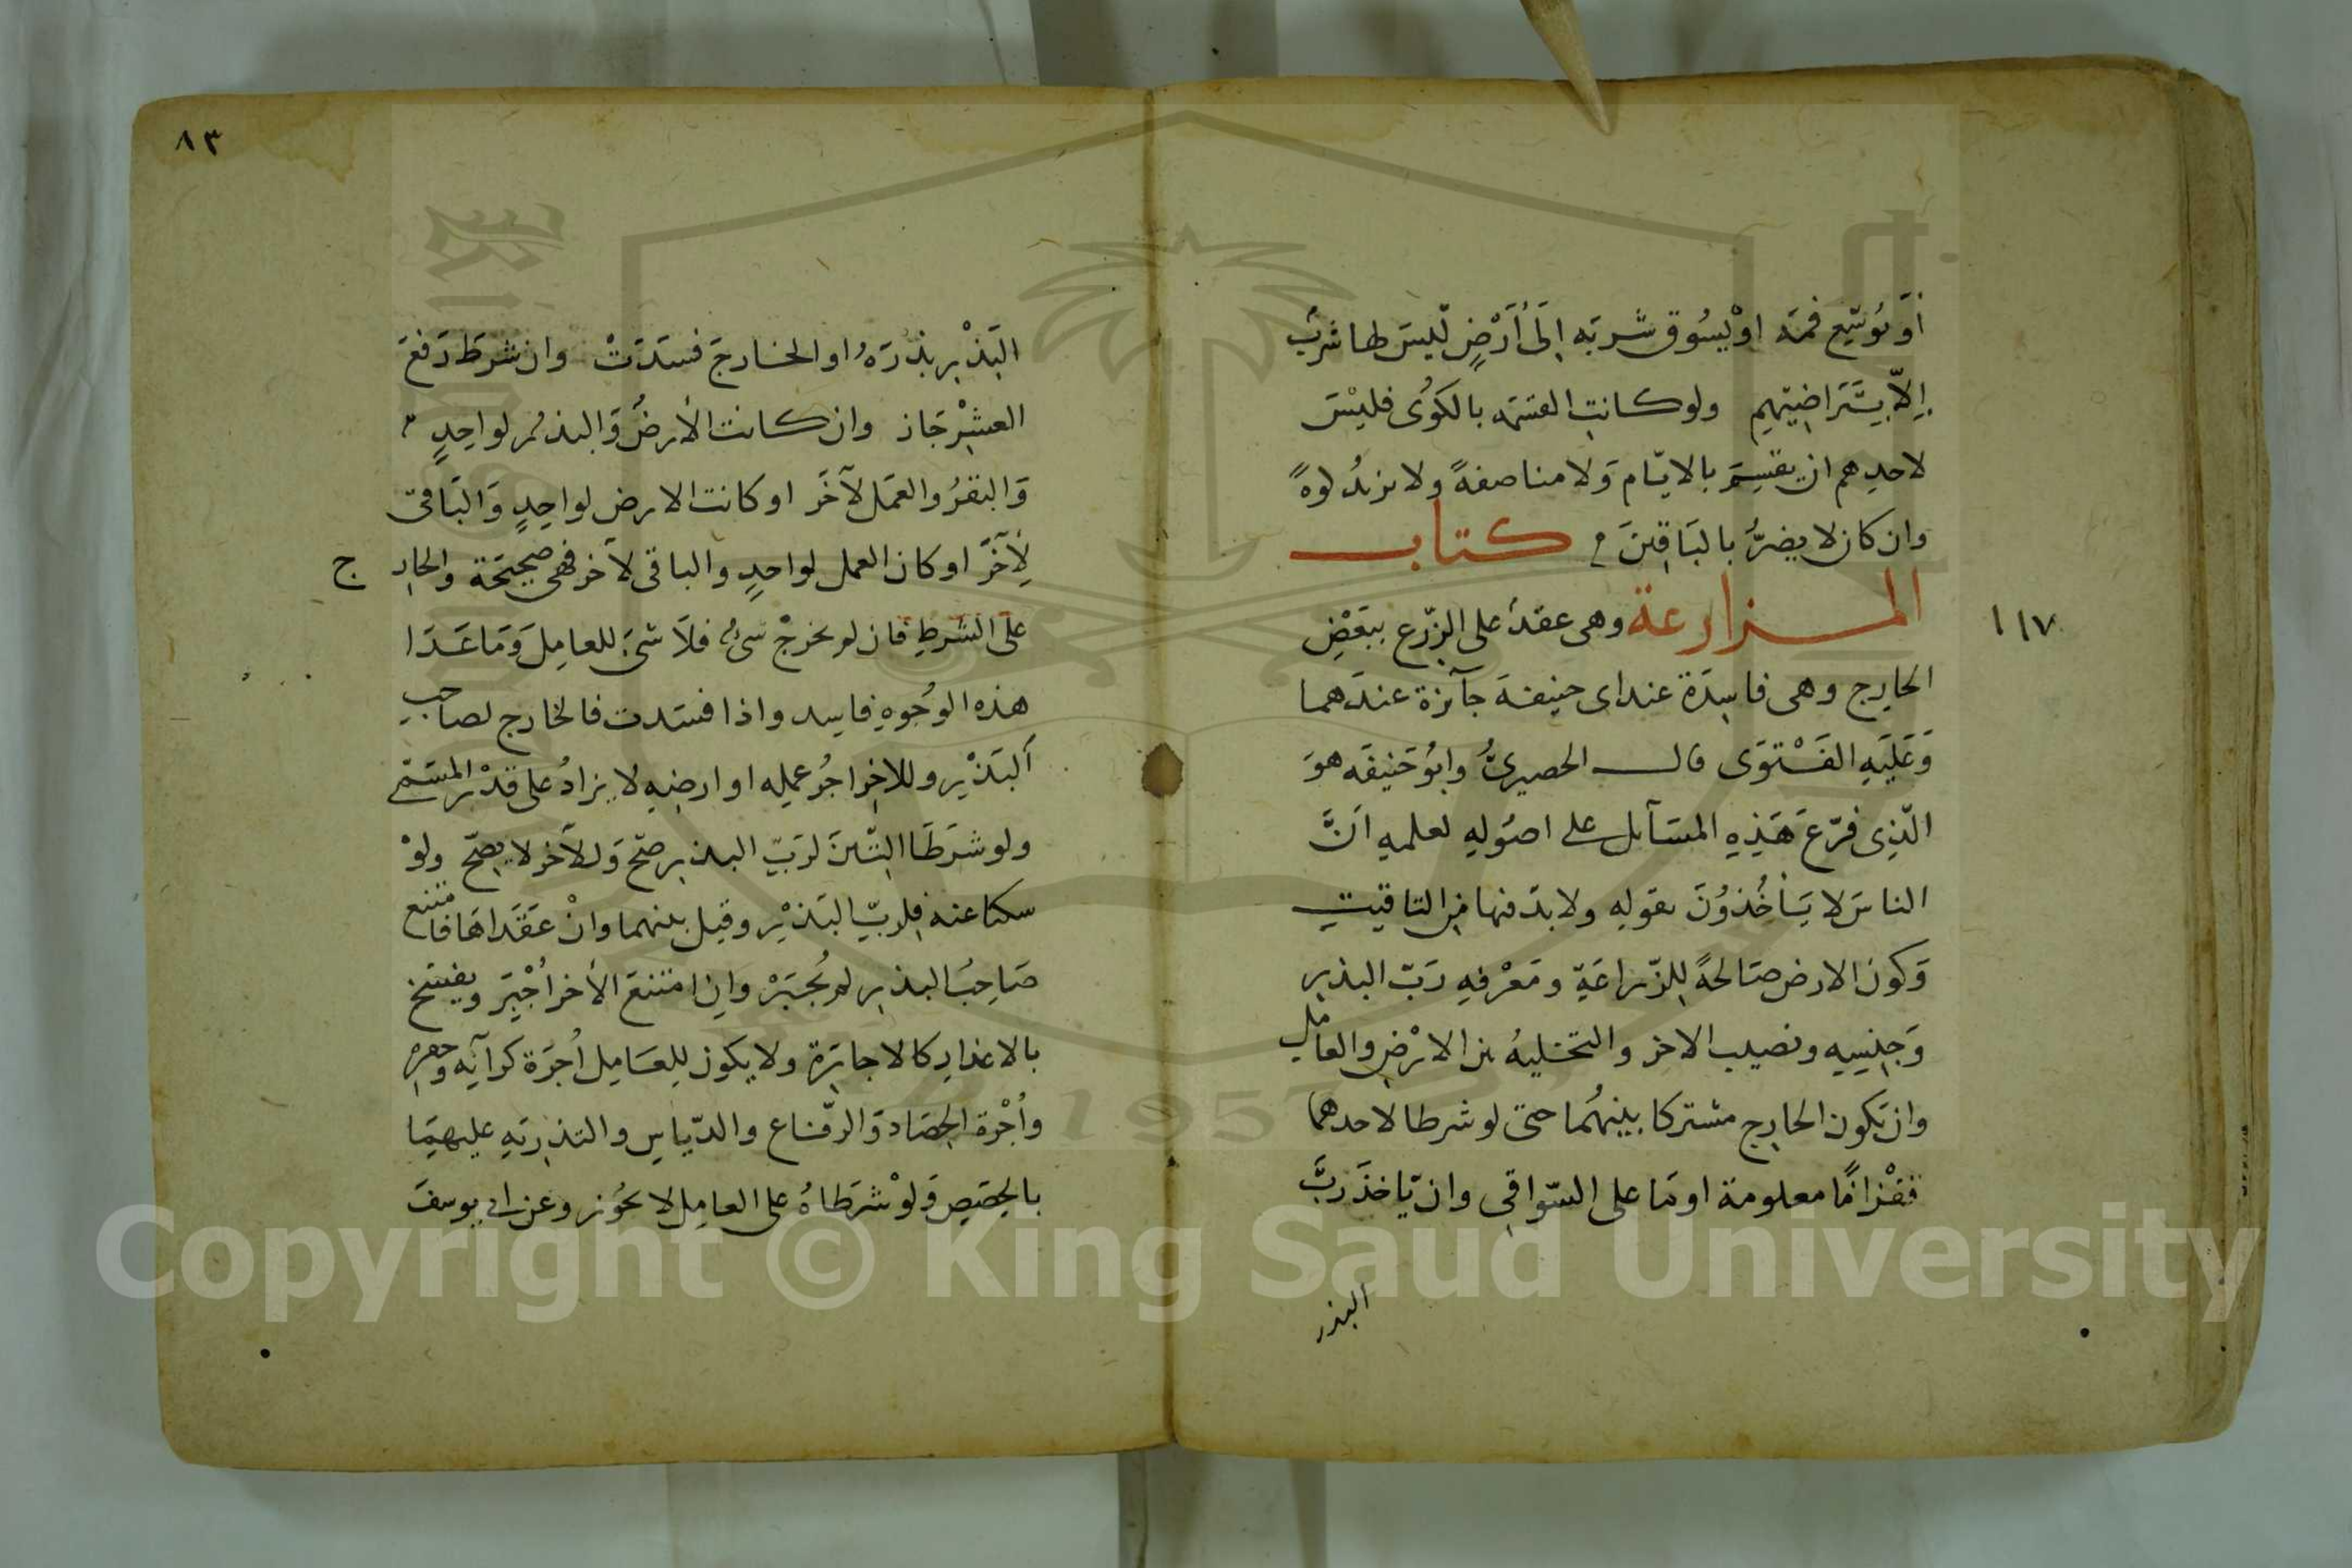 أو يُوَسِّع فمه او يسُوق شربه إلى أَرْضٍ لّيسَ لها شربٌ
إلّا بِتَراضيهم ولو كانتِ القسمه بالكوَى فليْسَ
لاحدِهم ان يقسِمَ بالايّام وَلا مناصفةً ولا يزيدُ كوةً
وان كان لا يضرُّ بالبَاقِينَ كتاب
المزارعة وهى عقدٌ على الزّرع ببَعْضِ
الخارِج وهى فاسِدَة عند ابى حنيفة جآئزة عندَهما
وَعَليَهِ الفَتْوَى قال الحصيرىُّ وابُو حَنيفَه هوَ
الّذِى فرّعَ هَذِهِ المسَآئل على اصُولِهِ لعلمهِ انَّ
الناسَ لا يَأخُذوُنَ بقولِهِ ولا بدّ فيها من التاقيتِ
وَكون الارض صَالحةً لِلزّراعَةِ ومَعْرفهِ رَبّ البذرِ
وَجِنسِهِ ونصيب الاخر والتخليهُ بين الارْضِ والعاملِ
وان يَكون الخارِج مشتركا بينهُما حتى لو شرطا لاحدهما
قفْزانًا معلومة او مَا على السّواقِى وان يّاخذَ رَبُّ
البذر
١١٧
٨٣
البَذْرِ بذرَهُ او الخارجَ فسَدَتْ وان شرطَ دَفعَ
العشْرِ جَاز وان كانت الأرضُ وَالبذرُ لواحِدٍ
وَالبقرُ والعمَل لآخَر او كانت الارض لواحِدٍ وَالبَاقى
لِآخَرَ او كان العمل لواحدٍ والباقى لآخر فهى صحِيحَة والخارِ ج
على الشرطِ فان لم يخرجْ شىءٌ فلَا شىَ للعامِلَ وَمَا عَدَا
هذه الوُجُوهِ فاسِد واذا فسَدت فالخارج لصاحبِ
ألبَذْرِ وللاخِر اجرُ عملِه او ارضِهِ لا يزادُ على قدْرِ المسَمّى
ولو شرَطَا التِّبنَ لرَبّ البذرِ صحّ وَللآخر لا يصِحّ ولوْ
سكتا عنه فلِربّ البَذرِ وقيل بينهما وانْ عَقَدَاهَا فامتنع
صَاحِبُ البذرِ لم يُجبَرْ وانِ امتنعَ الأخر أُجْبِرَ ويفسَخ
بالاعذارِ كالاجارَة ولا يكون لِلعَامِل أُجرَة كرابِه وحفرِه
وأُجْرة الحِصَاد وَالرّفاع والدّياسِ والتذريَهِ عليهمَا
بالحِصَصِ وَلوْ شرَطَاهُ على العامِل لا يجُوز وعن ابى يوسفَ